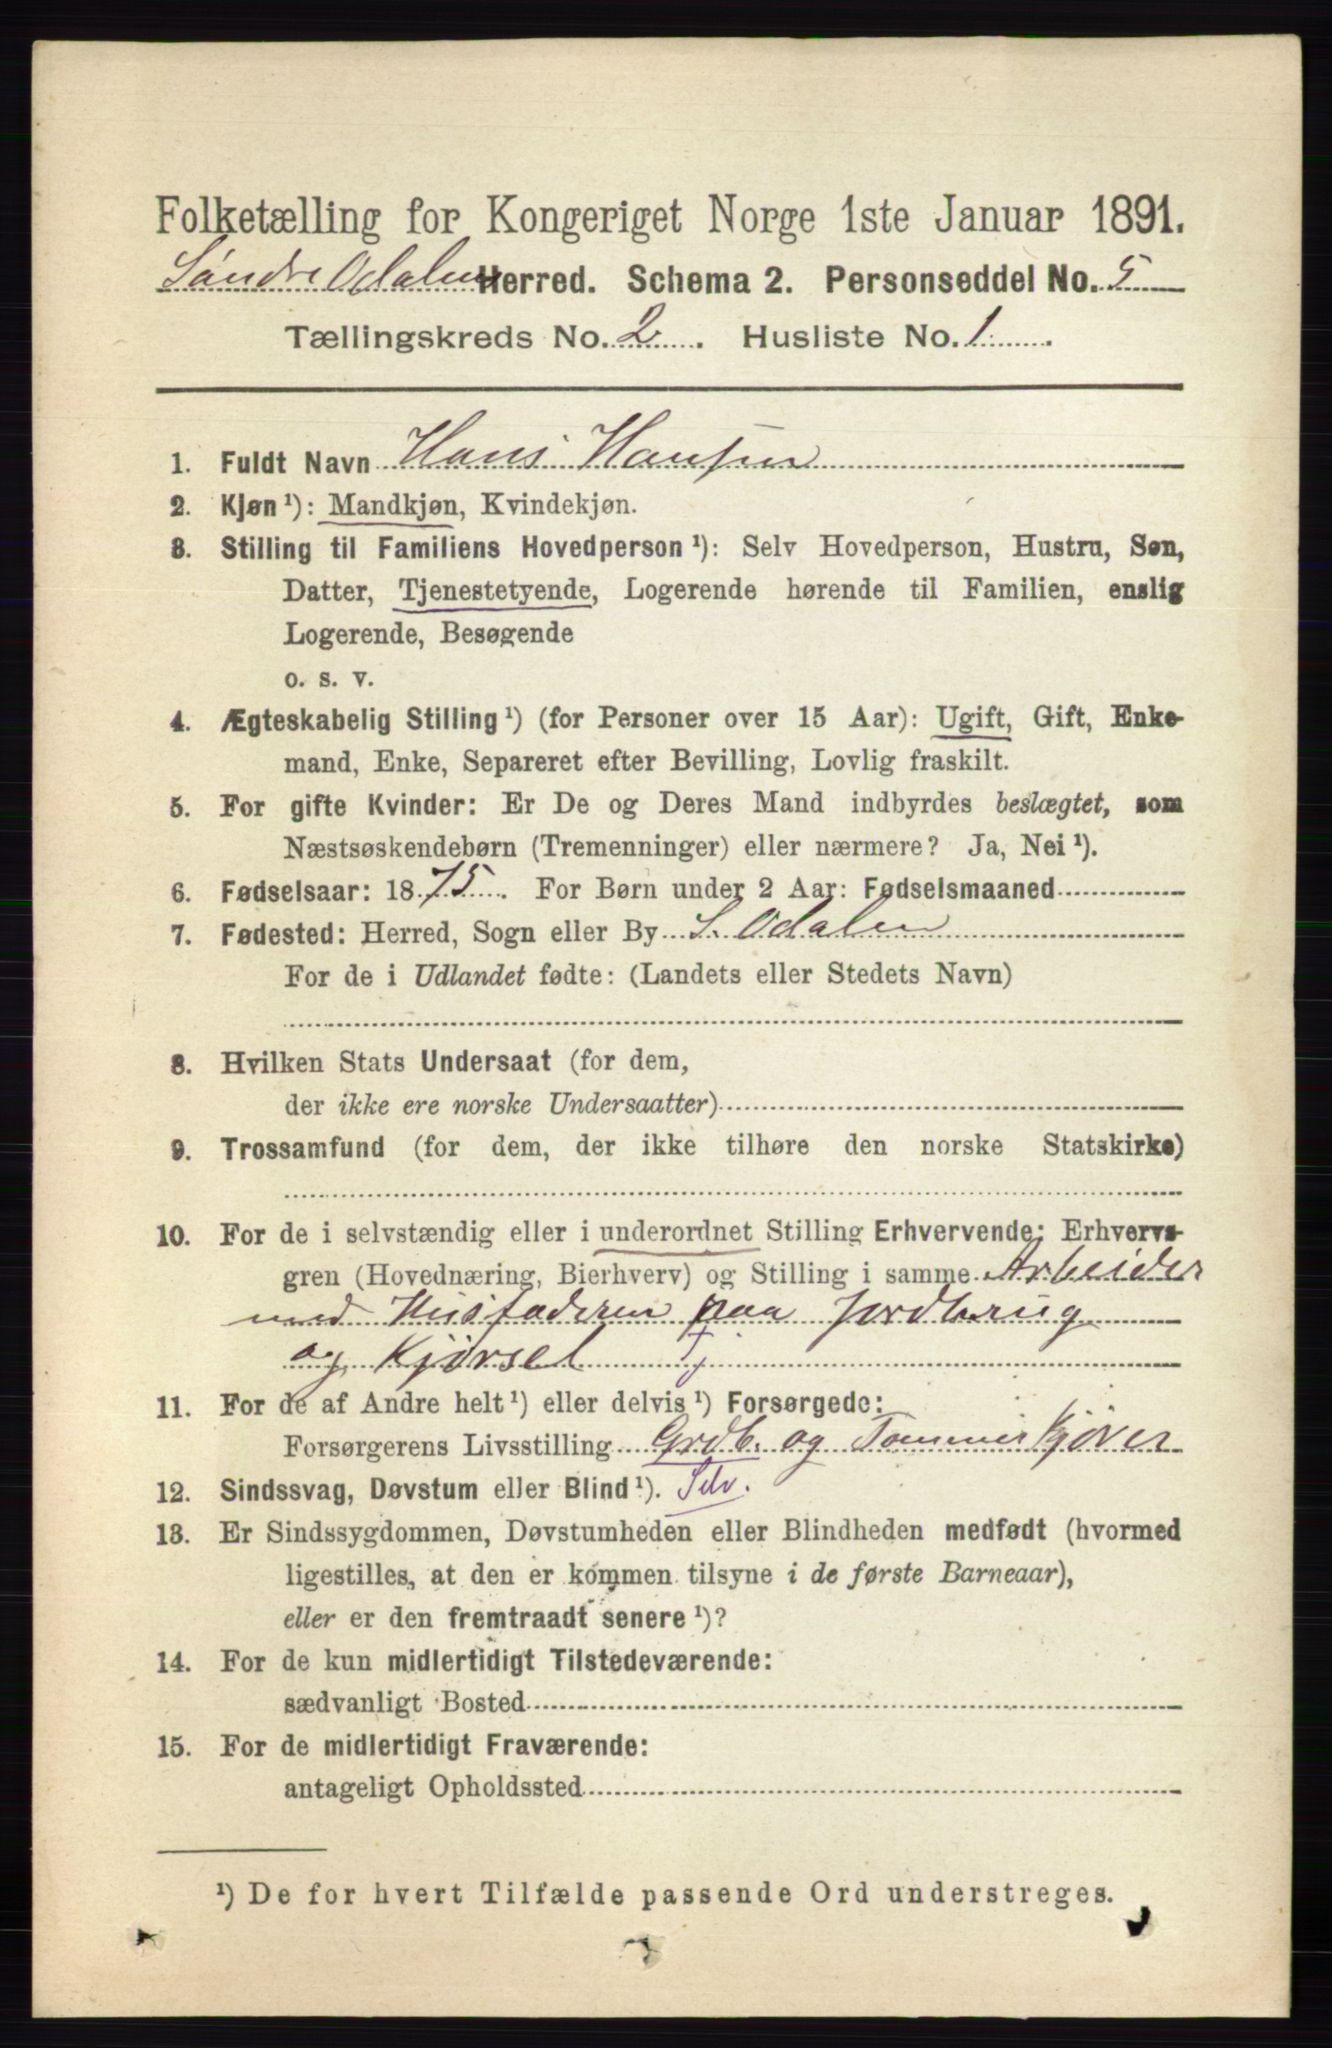 Folketælling for Kongeriget Norge 1ste Januar 1891.
Søndre Odalen Herred. Schema 2. Personseddel No. 5
Tællingskreds No. 2. Husliste No. 1
1. Fuldt Navn Hans Hansen
2. Kjøn ¹): Mandkjøn, Kvindekjøn.
3. Stilling til Familiens Hovedperson ¹): Selv Hovedperson, Hustru, Søn,
Datter, Tjenestetyende, Logerende hørende til Familien, enslig
Logerende, Besøgende
o. s. v.
4. Ægteskabelig Stilling ¹) (for Personer over 15 Aar): Ugift, Gift, Enke-
mand, Enke, Separeret efter Bevilling, Lovlig fraskilt.
5. For gifte Kvinder: Er De og Deres Mand indbyrdes beslægtet, som
Næstsøskendebørn (Tremenninger) eller nærmere? Ja, Nei ¹).
6. Fødselsaar: 1875. For Børn under 2 Aar: Fødselsmaaned
7. Fødested: Herred, Sogn eller By S. Odalen
For de i Udlandet fødte: (Landets eller Stedets Navn)
8. Hvilken Stats Undersaat (for dem,
der ikke ere norske Undersaatter)
9. Trossamfund (for dem, der ikke tilhøre den norske Statskirke)
10. For de i selvstændig eller i underordnet Stilling Erhvervende: Erhvervs-
gren (Hovednæring, Bierhverv) og Stilling i samme Arbeider
med Husfaderen paa Jordbrug
og Kjørsel Tj
11. For de af Andre helt ¹) eller delvis ¹) Forsørgede:
Forsørgerens Livsstilling Grdb. og Tømmerkjører
12. Sindssvag, Døvstum eller Blind ¹). Selv.
13. Er Sindssygdommen, Døvstumheden eller Blindheden medfødt (hvormed
ligestilles, at den er kommen tilsyne i de første Barneaar),
eller er den fremtraadt senere ¹)?
14. For de kun midlertidigt Tilstedeværende:
sædvanligt Bosted
15. For de midlertidigt Fraværende:
antageligt Opholdssted
¹) De for hvert Tilfælde passende Ord understreges.